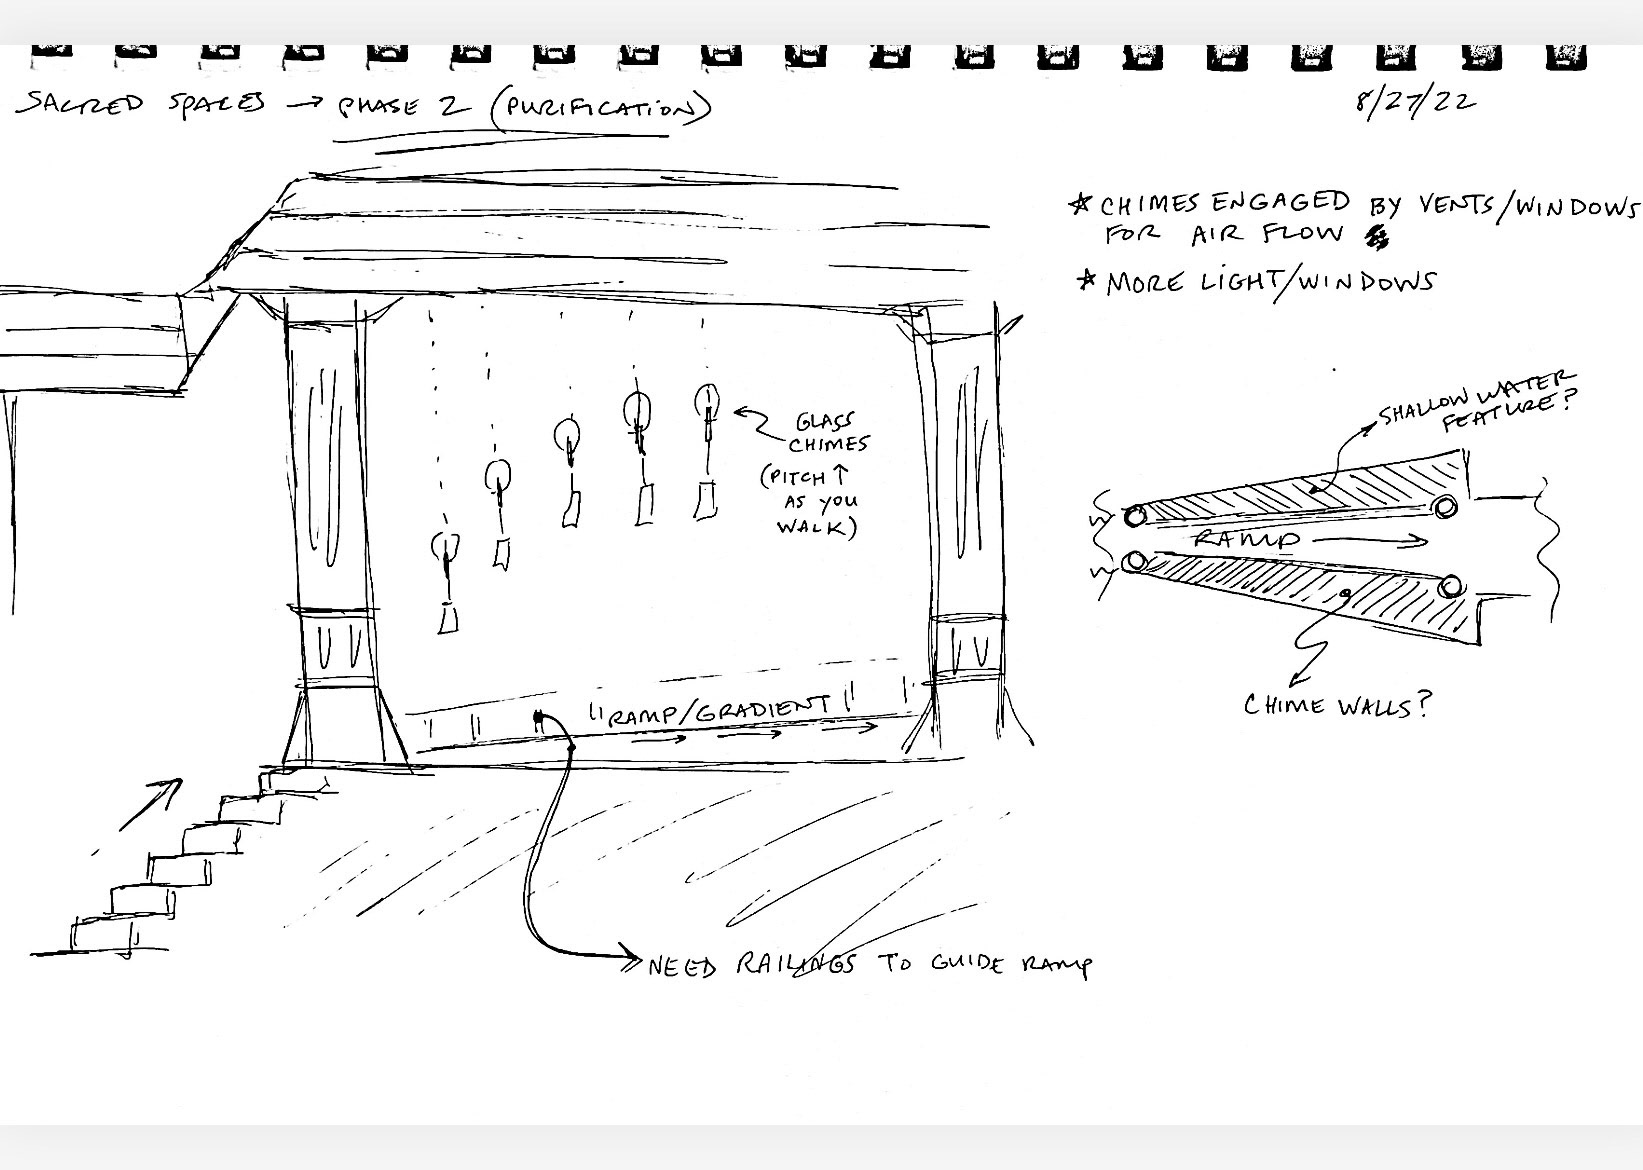 SACRED SPACES → PHASE 2 (PURIFICATION)
8/27/22
* CHIMES ENGAGED BY VENTS/WINDOWS
FOR AIR FLOW
* MORE LIGHT/WINDOWS
GLASS
CHIMES
(PITCH ↑
AS YOU
WALK)
SHALLOW WATER
FEATURE?
RAMP →
CHIME WALLS?
RAMP/GRADIENT
NEED RAILINGS TO GUIDE RAMP